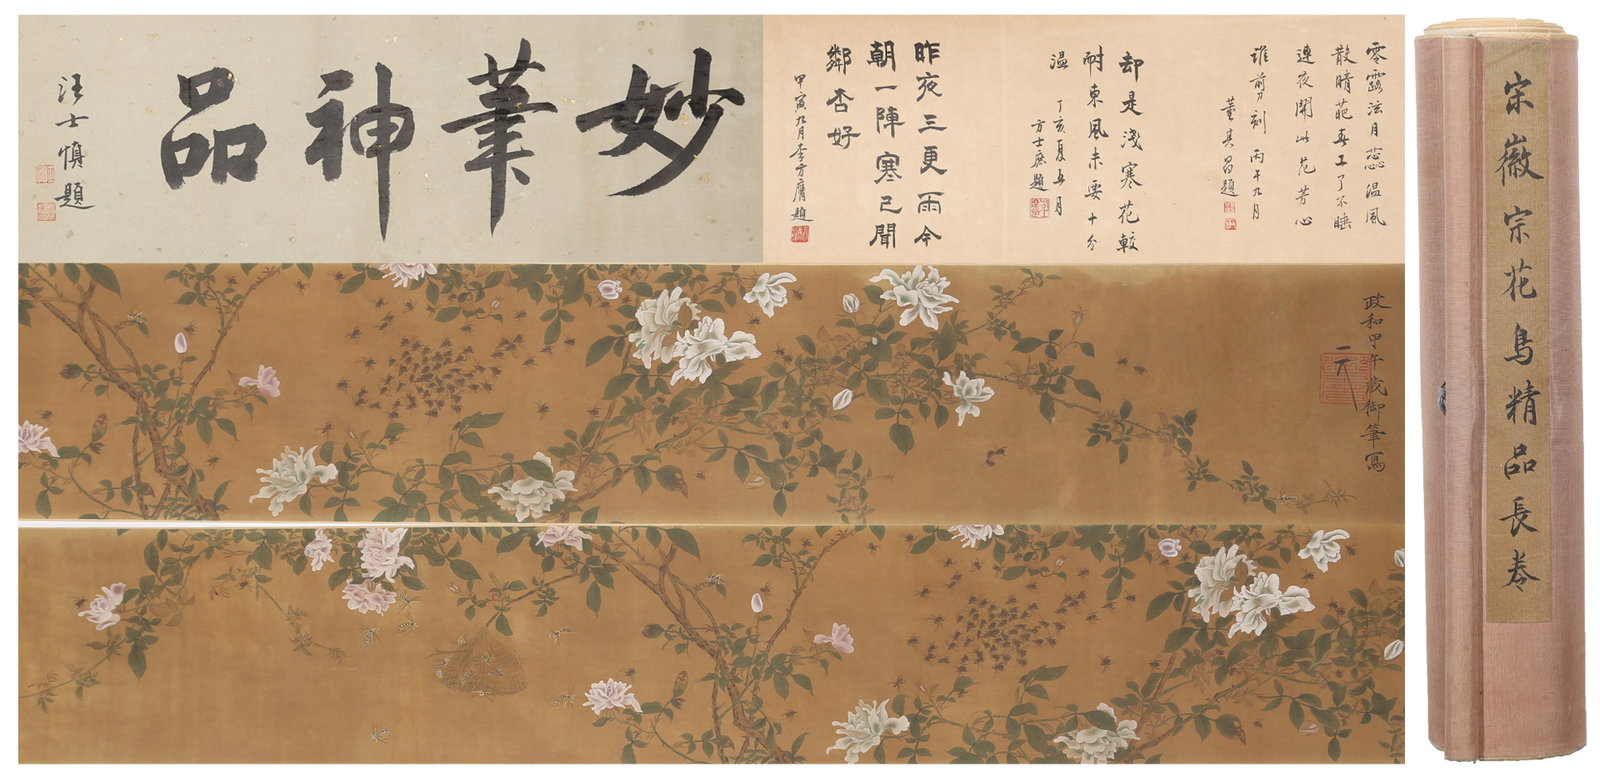 妙筆神品
汪士慎題
零露泫月蕊温風
散晴葩春工了不睡
連夜開此花芳心
誰剪刻 丙午九月
董其昌題
却是淺寒花較
耐東風未要十分
温
丁亥夏五月
方士庶題
昨夜三更雨今
朝一陣寒已聞
鄰杏好
甲寅九月李方膺題
政和甲午歲御筆寫
宋徽宗花鳥精品長卷